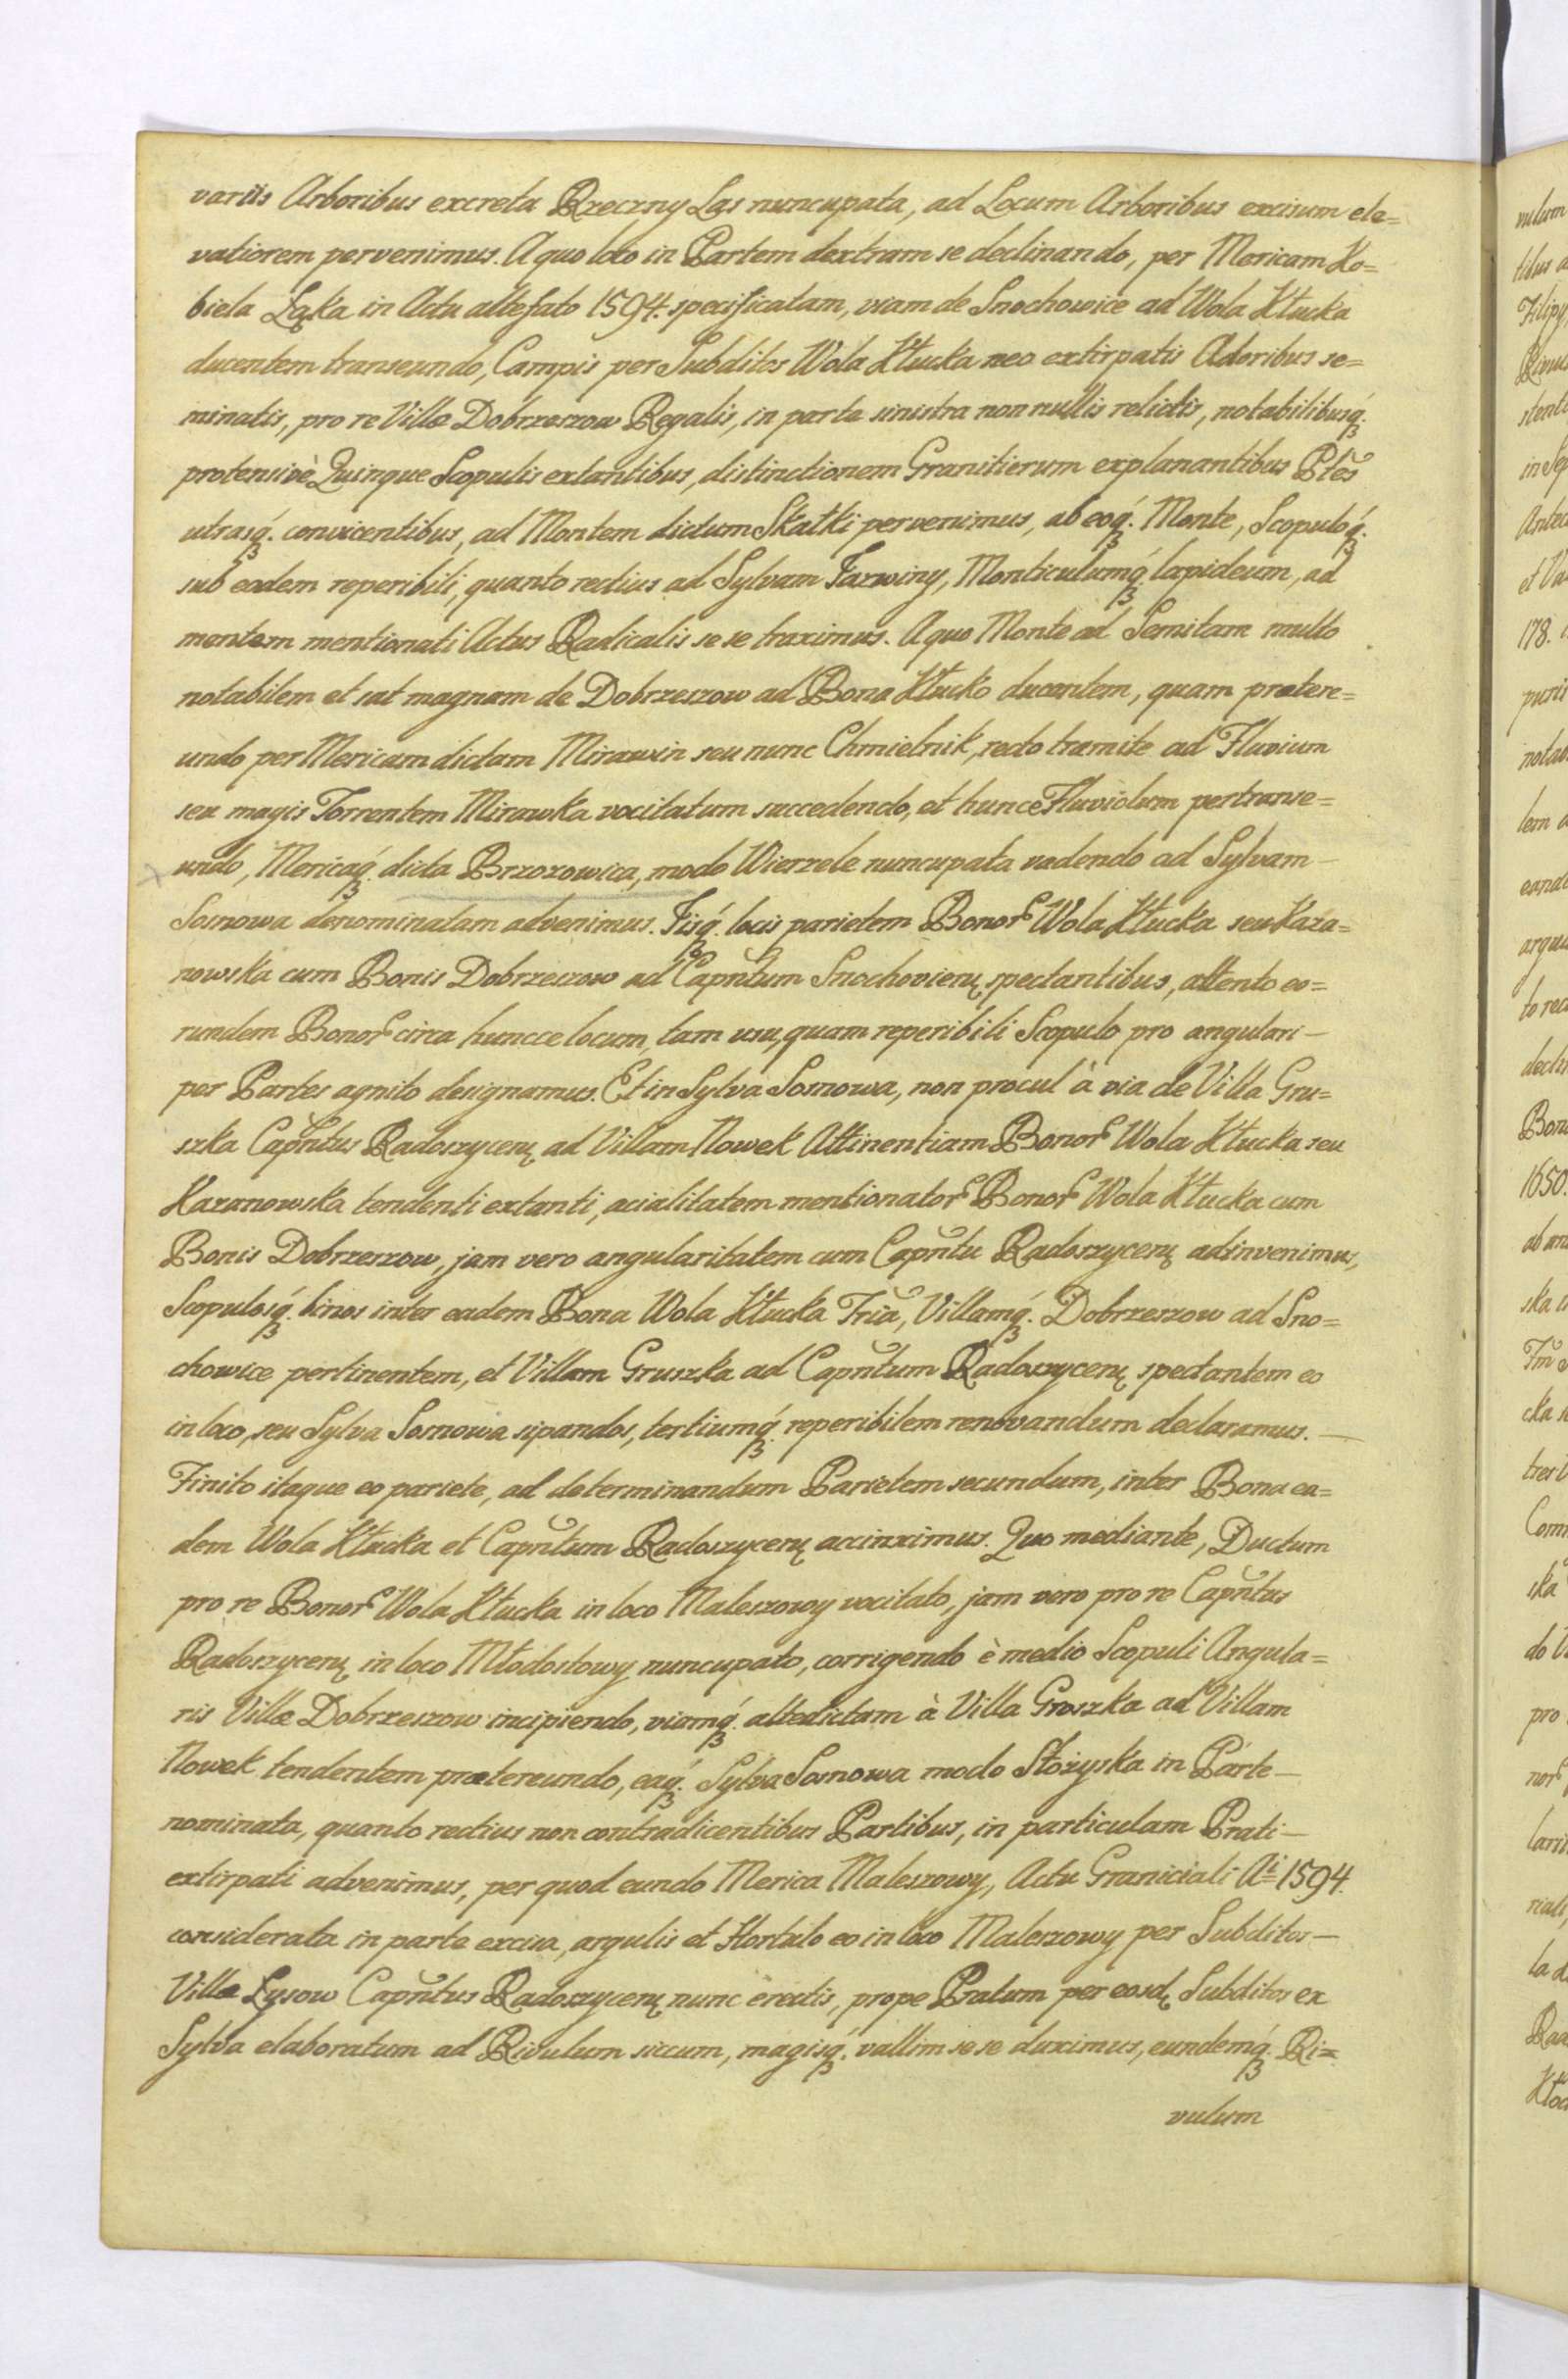 variis Arboribus excreta Rzeczny Las nuncupata, ad Locum Arboribus excisum ele=
vatiorem pervenimus. A quo loco in Partem dextram se declinando, per Mericam Ko=
biela Łąka in Actu altefato 1594. specificatam, viam de Snochowice ad Wola Kłucka
ducentem transeundo, Campis per Subditos Wola Kłucka neo extirpatis Adoribus se=
minatis, pro re Villæ Dobrzeszow Regalis, in parte sinistra non nullis relictis, notabilibusq́.
protensivè Quinque Scopulis extantibus, distinctionem Granitierum explanantibus Ptes
utrasq́. convicentibus, ad Montem dictum Skałki pervenimus, ab eoq́. Monte, Scopuloq́.
sub eodem reperibili, quanto rectius ad Sylvam Jazwiny, Monticulumq́ lapideum, ad
mentem mentionati Actus Radicalis se se traximus. A quo Monte ad Semitam multo
notabilem et sat magnam de Dobrzeszow ad Bona Kłucko ducentem, quam prætere=
undo per Mericam dictam Mirawin seu nunc Chmielnik, recto tramite ad Fluvium
seu magis Torrentem Mirawka vocitatum succedendo, et hunce Fluviolum pertranse=
undo, Mericaq́. dicta Brzozowica, modo Wierzele nuncupata vadendo ad Sylvam —
Sosnowa denominatam advenimus. Jisq́. locis parietem Bonor Wola Kłucka seu Kaza=
nowska cum Bonis Dobrzeszow ad Capñtum Snochovicen spectantibus, attento eo=
rundem Bonor circa huncce locum, tam usu, quam reperibili Scopulo pro angulari —
per Partes agnito designamus. Et in Sylva Sosnowa, non procul à via de Villa Gru=
szka Capñtus Radoszycen ad Villam Nowek Attinentiam Bonor Wola Kłucka seu
Kazanowska tendenti extanti, acialitatem mentionator Bonor Wola Kłucka cum
Bonis Dobrzeszow, jam vero angularitatem cum Capñtu Radoszycen adinvenimus,
Scopulosq́. binos inter eadem Bona Wola Kłucka Tria, Villamq́. Dobrzeszow ad Sno=
chowice pertinentem, et Villam Gruszka ad Capñtum Radoszycen spectantem eo
in loco, seu Sylva Sosnowa sipandos, tertiumq́ reperibilem renovandum declaramus. —
Finito itaque eo pariete, ad determinandum Parietem secundum, inter Bona ea=
dem Wola Kłucka et Capñtum Radoszycen accinximus. Quo mediante, Ductum
pro re Bonor Wola Kłucka in loco Maleszowy vocitato, jam vero pro re Capñtus
Radoszycen in loco Młodostowy nuncupato, corrigendo è medio Scopuli Angula=
ris Villæ Dobrzeszow incipiendo, viamq́. altedictam à Villa Groszka ad Villam
Nowek tendentem prætereundo, eaq́. Sylva Sosnowa modo Stożyska in Parte —
nominata, quanto rectius non contradicentibus Partibus, in particulam Prati —
extirpati advenimus, per quod eundo Merica Maleszowy, Actu Graniciali Ai 1594.
considerata in parte excisa, argulis et Hortulo eo in loco Maleszowy per Subditos —
Villæ Łysow Capñtus Radoszycen nunc erectis, prope Pratum per eosd Subditos ex
Sylva elaboratum ad Rivulum siccum, magisq́. vallim se se duximus, eundemq́. Ri=
vulum